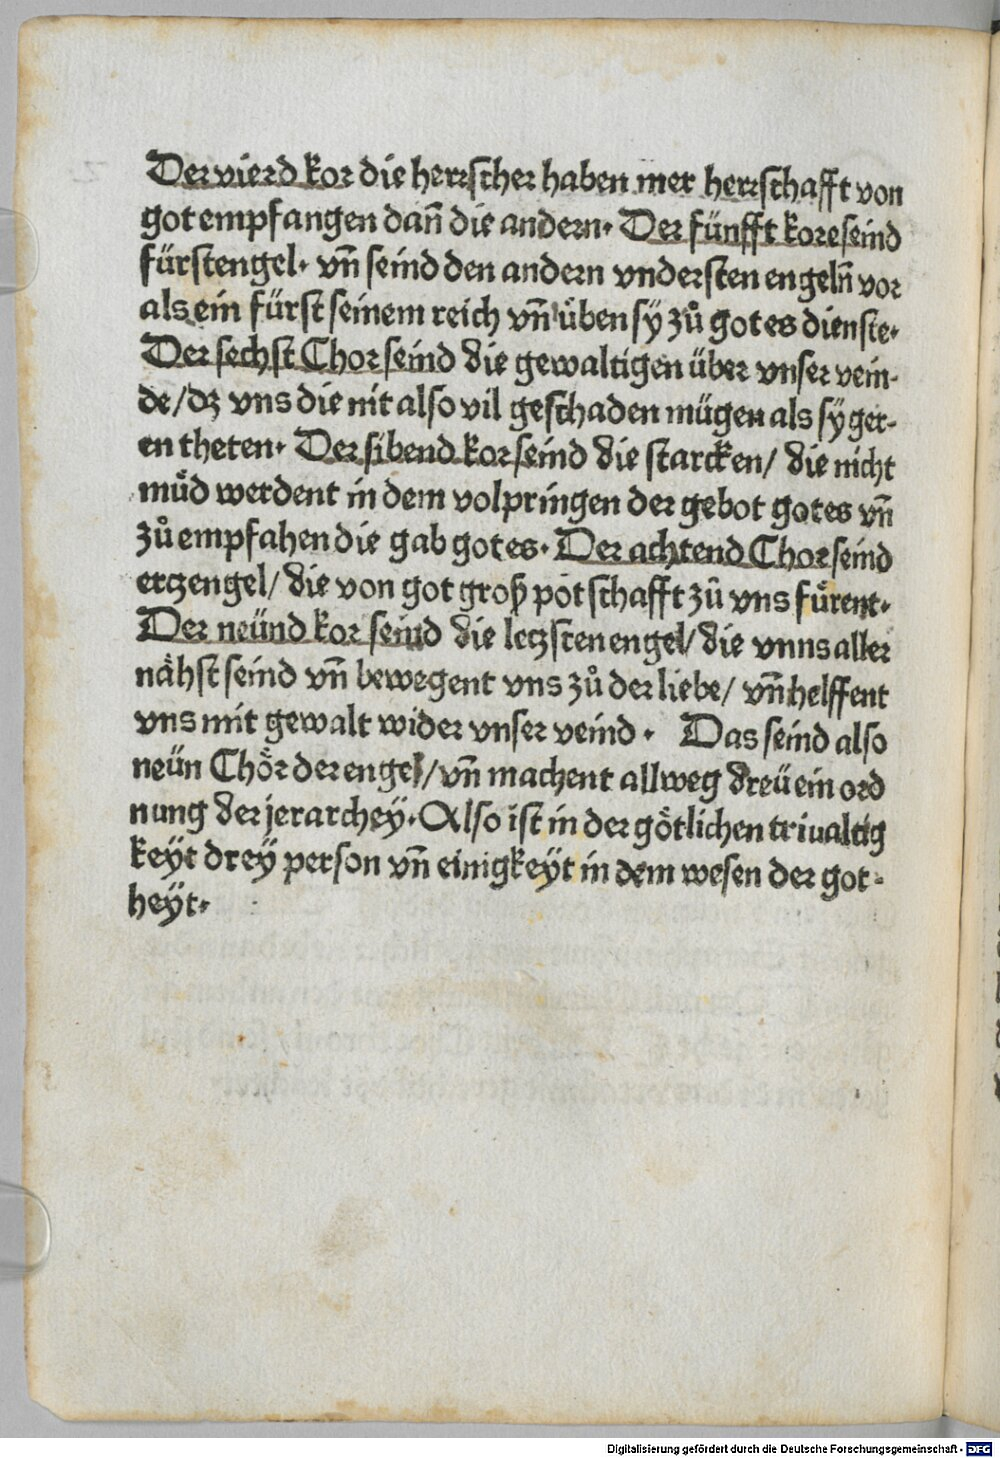 Der vierd kor die herrscher haben mer herrschafft von
got empfangen dañ die andern. Der fünfft kore seind
fürstengel. vñ seind den andern vndersten engelñ vor
als ein fürst seinem reich vñ üben sy zů gotes dienste.
Der sechst Chor seind die gewaltigen über vnser vein-
de/dz vns die nit also vil geschaden mügen als sÿ ger-
en theten. Der sibend kor seind die starcken/ die nicht
můd werdent in dem volpringen der gebot gotes vñ
zů empfahen die gab gotes. Der achtend Chor seind
erczengel/ die von got groß potschafft zů vns fůrent.
Der neünd kor seind die leczsten engel/ die vnns aller
nåhst seind vñ bewegent vns zů der liebe/ vñ helffent
vns mit gewalt wider vnser veind. Das seind also
neün Chör der engel/vñ machent allweg dreü ein ord
nung der jerarchey. Also ist in der götlichen triualtig
keyt drey person vñ einigkeyt in dem wesen der got-
heyt.
Digitalisierung gefördert durch die Deutsche Forschungsgemeinschaft - DFG